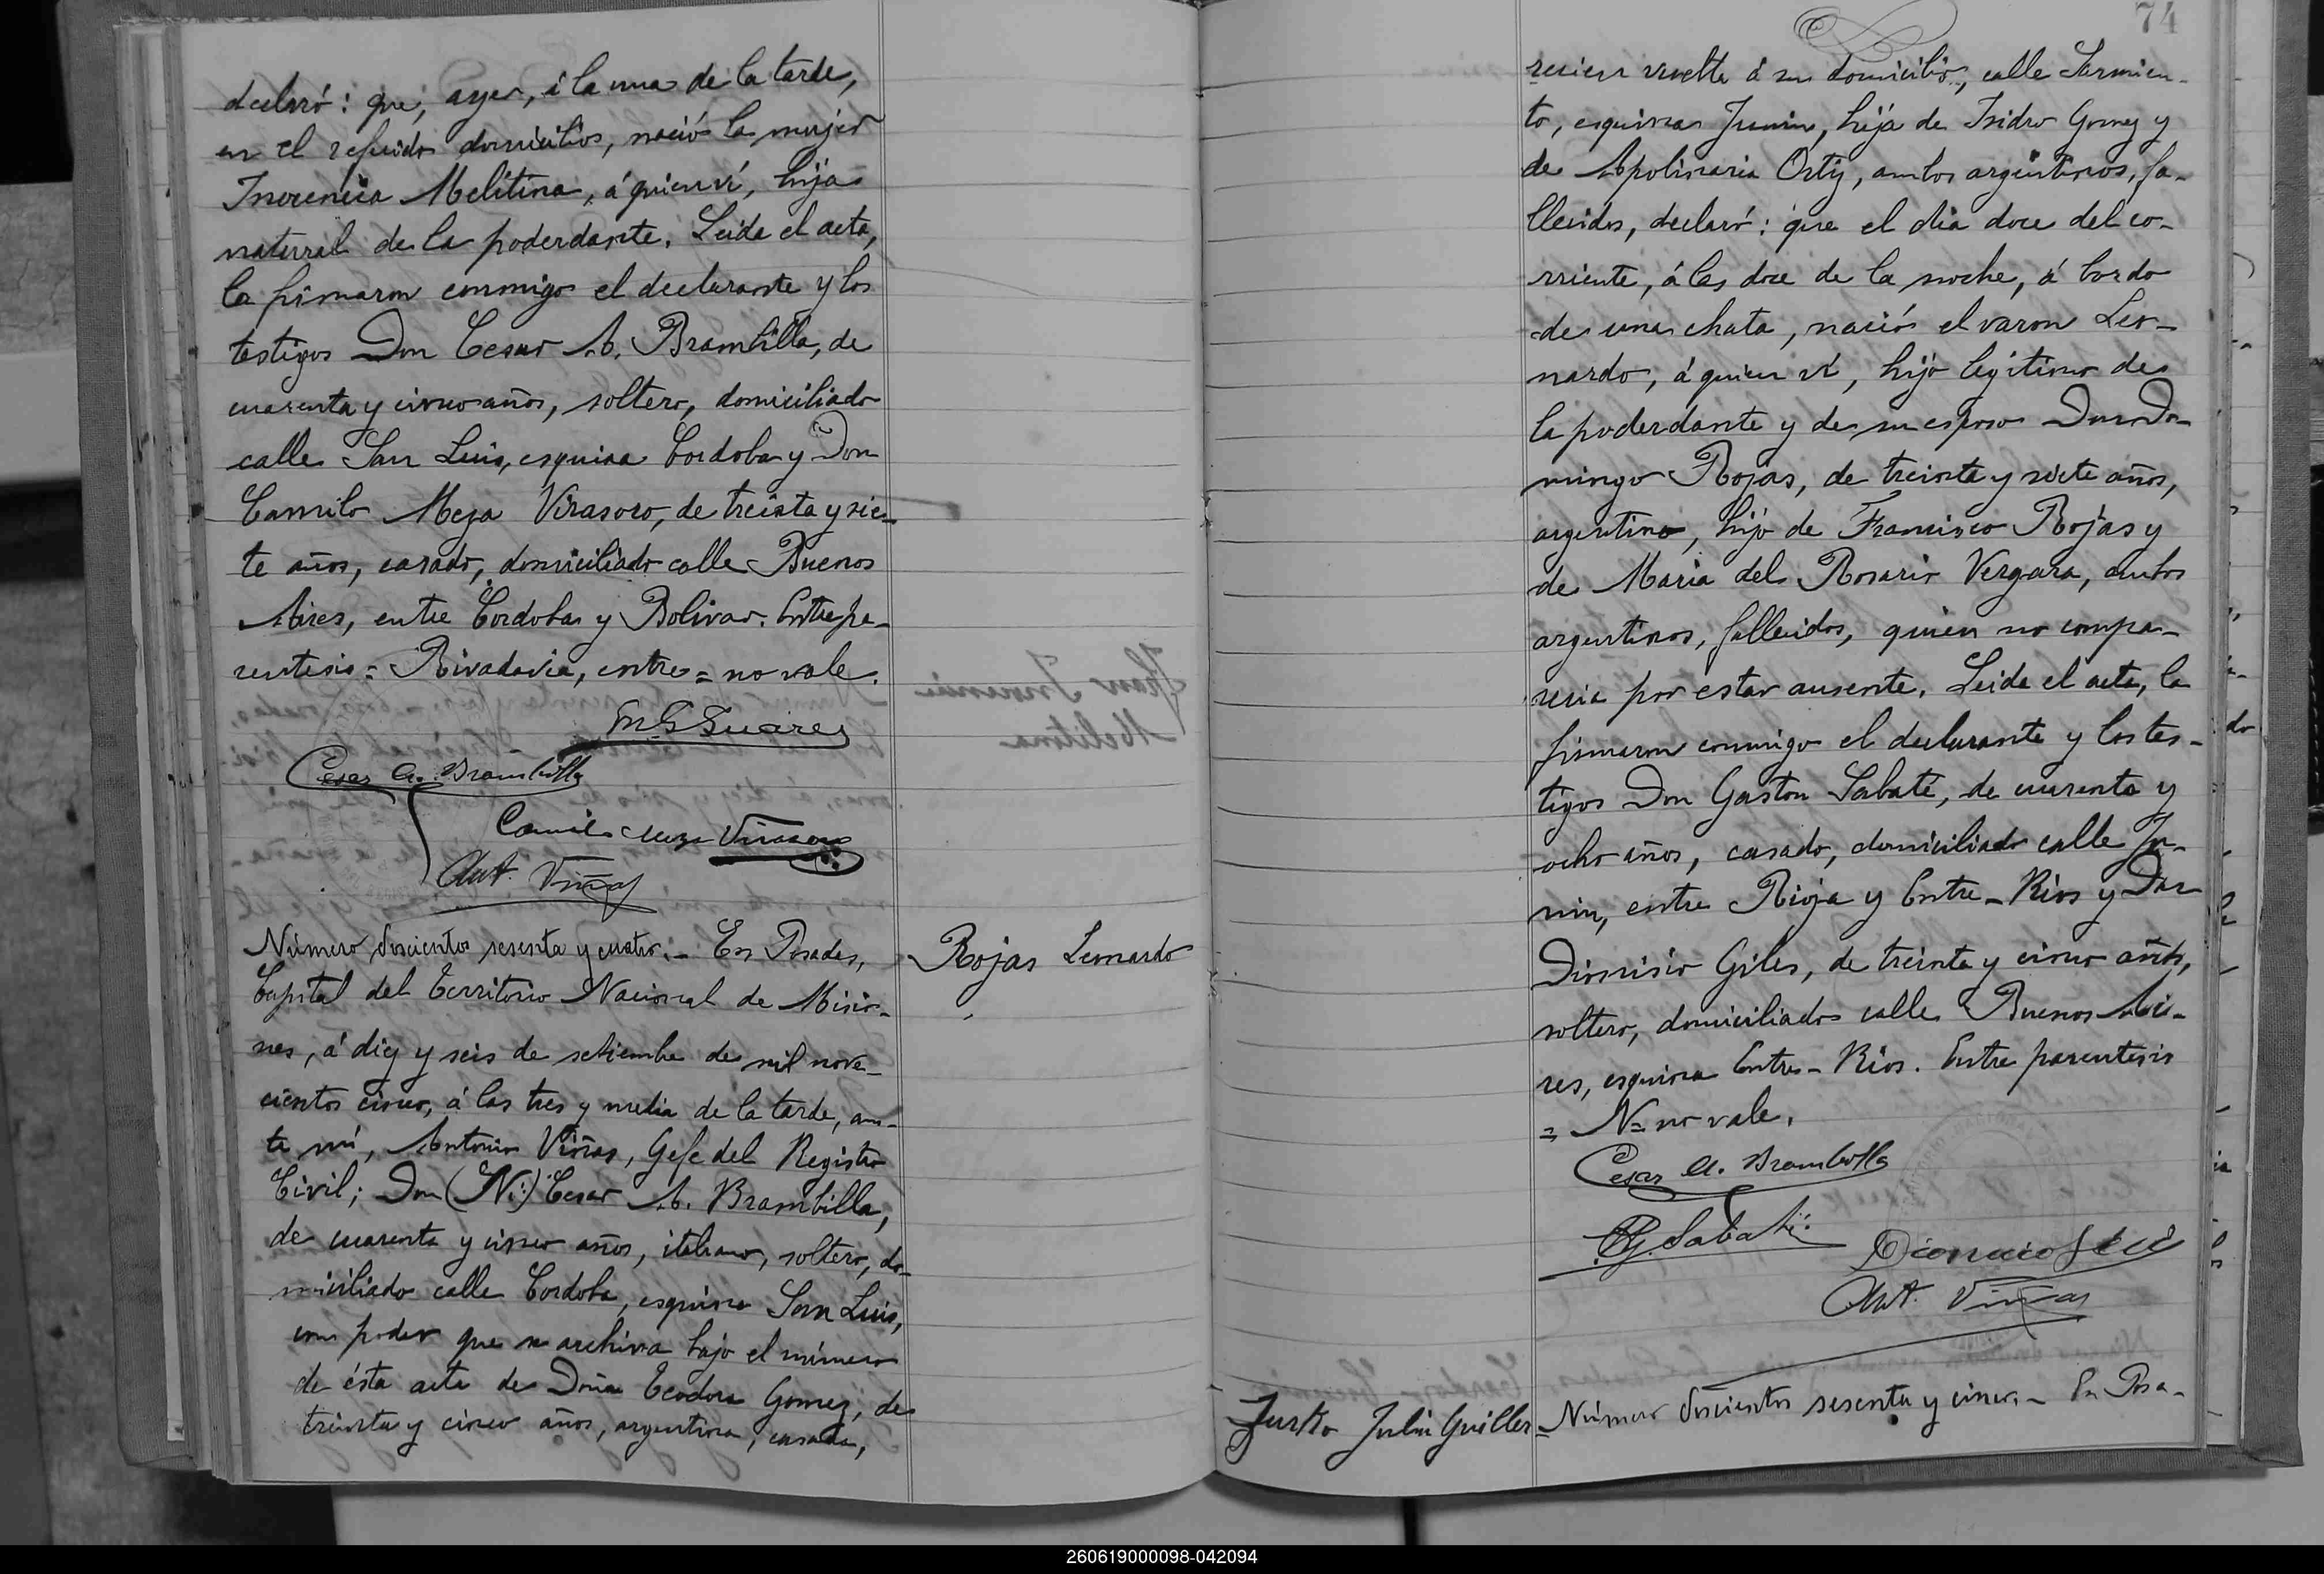 declaró: que, ayer, á la una de la tarde,
en el referido domicilio, nació la mujer
Inocencia Melitina, á quien ví, hija
natural de la poderdante. Leida el acta,
la firmaron conmigo el declarante y los
testigos Don Cesar A. Brambilla, de
cuarenta y cinco años, soltero, domiciliado
calle San Luis, esquina Cordoba y Don
Camilo Meza Virasoro, de treinta y sie-
te años, casado, domiciliado calle Buenos
Aires, entre Cordoba y Bolivar. Entre pa-
rentesis = Rivadavia, entre = no vale.
M. G. Suarez
Cesar A. Brambilla
Camilo Meza Virasoro
Ant. Viñas
Número doscientos sesenta y cuatro. - En Posadas,
Rojas Leonardo
Capital del Territorio Nacional de Misio-
nes, á diez y seis de setiembre de mil nove-
cientos cinco, á las tres y media de la tarde, an-
te mí, Antonio Viñas, Gefe del Registro
Civil; Don (N:) Cesar A. Brambilla,
de cuarenta y cinco años, italiano, soltero, do-
miciliado calle Cordoba, esquina San Luis,
con poder que se archiva bajo el número
de ésta acta de Doña Teodora Gomez, de
treinta y cinco años, argentina, casada,
74
recien vuelta á su domicilio, calle Sarmien-
to, esquina Junin, hija de Isidro Gomez y
de Apolinaria Ortiz, ambos argentinos, fa-
llecidos, declaró: que el dia doce del co-
rriente, á las doce de la noche, á bordo
de una chata, nació el varon Leo-
nardo, á quien ví, hijo legitimo de
la poderdante y de su esposo Don Do-
mingo Rojas, de treinta y siete años,
argentino, hijo de Francisco Rojas y
de Maria del Rosario Vergara, ambos
argentinos, fallecidos, quien no compa-
recia por estar ausente. Leida el acta, la
firmaron conmigo el declarante y los tes-
tigos Don Gaston Sabaté, de cuarenta y
ocho años, casado, domiciliado calle Ju-
nin, entre Rioja y Entre-Rios y Don
Dionisio Giles, de treinta y cinco años,
soltero, domiciliado calle Buenos Ai-
res, esquina Entre-Rios. Entre parentesis
= N = no vale.
Cesar A. Brambilla
G. Sabaté
Dionicio
Ant. Viñas
Justo Julio Guiller-
Número doscientos sesenta y cinco. - En Posa-
260619000098-042094